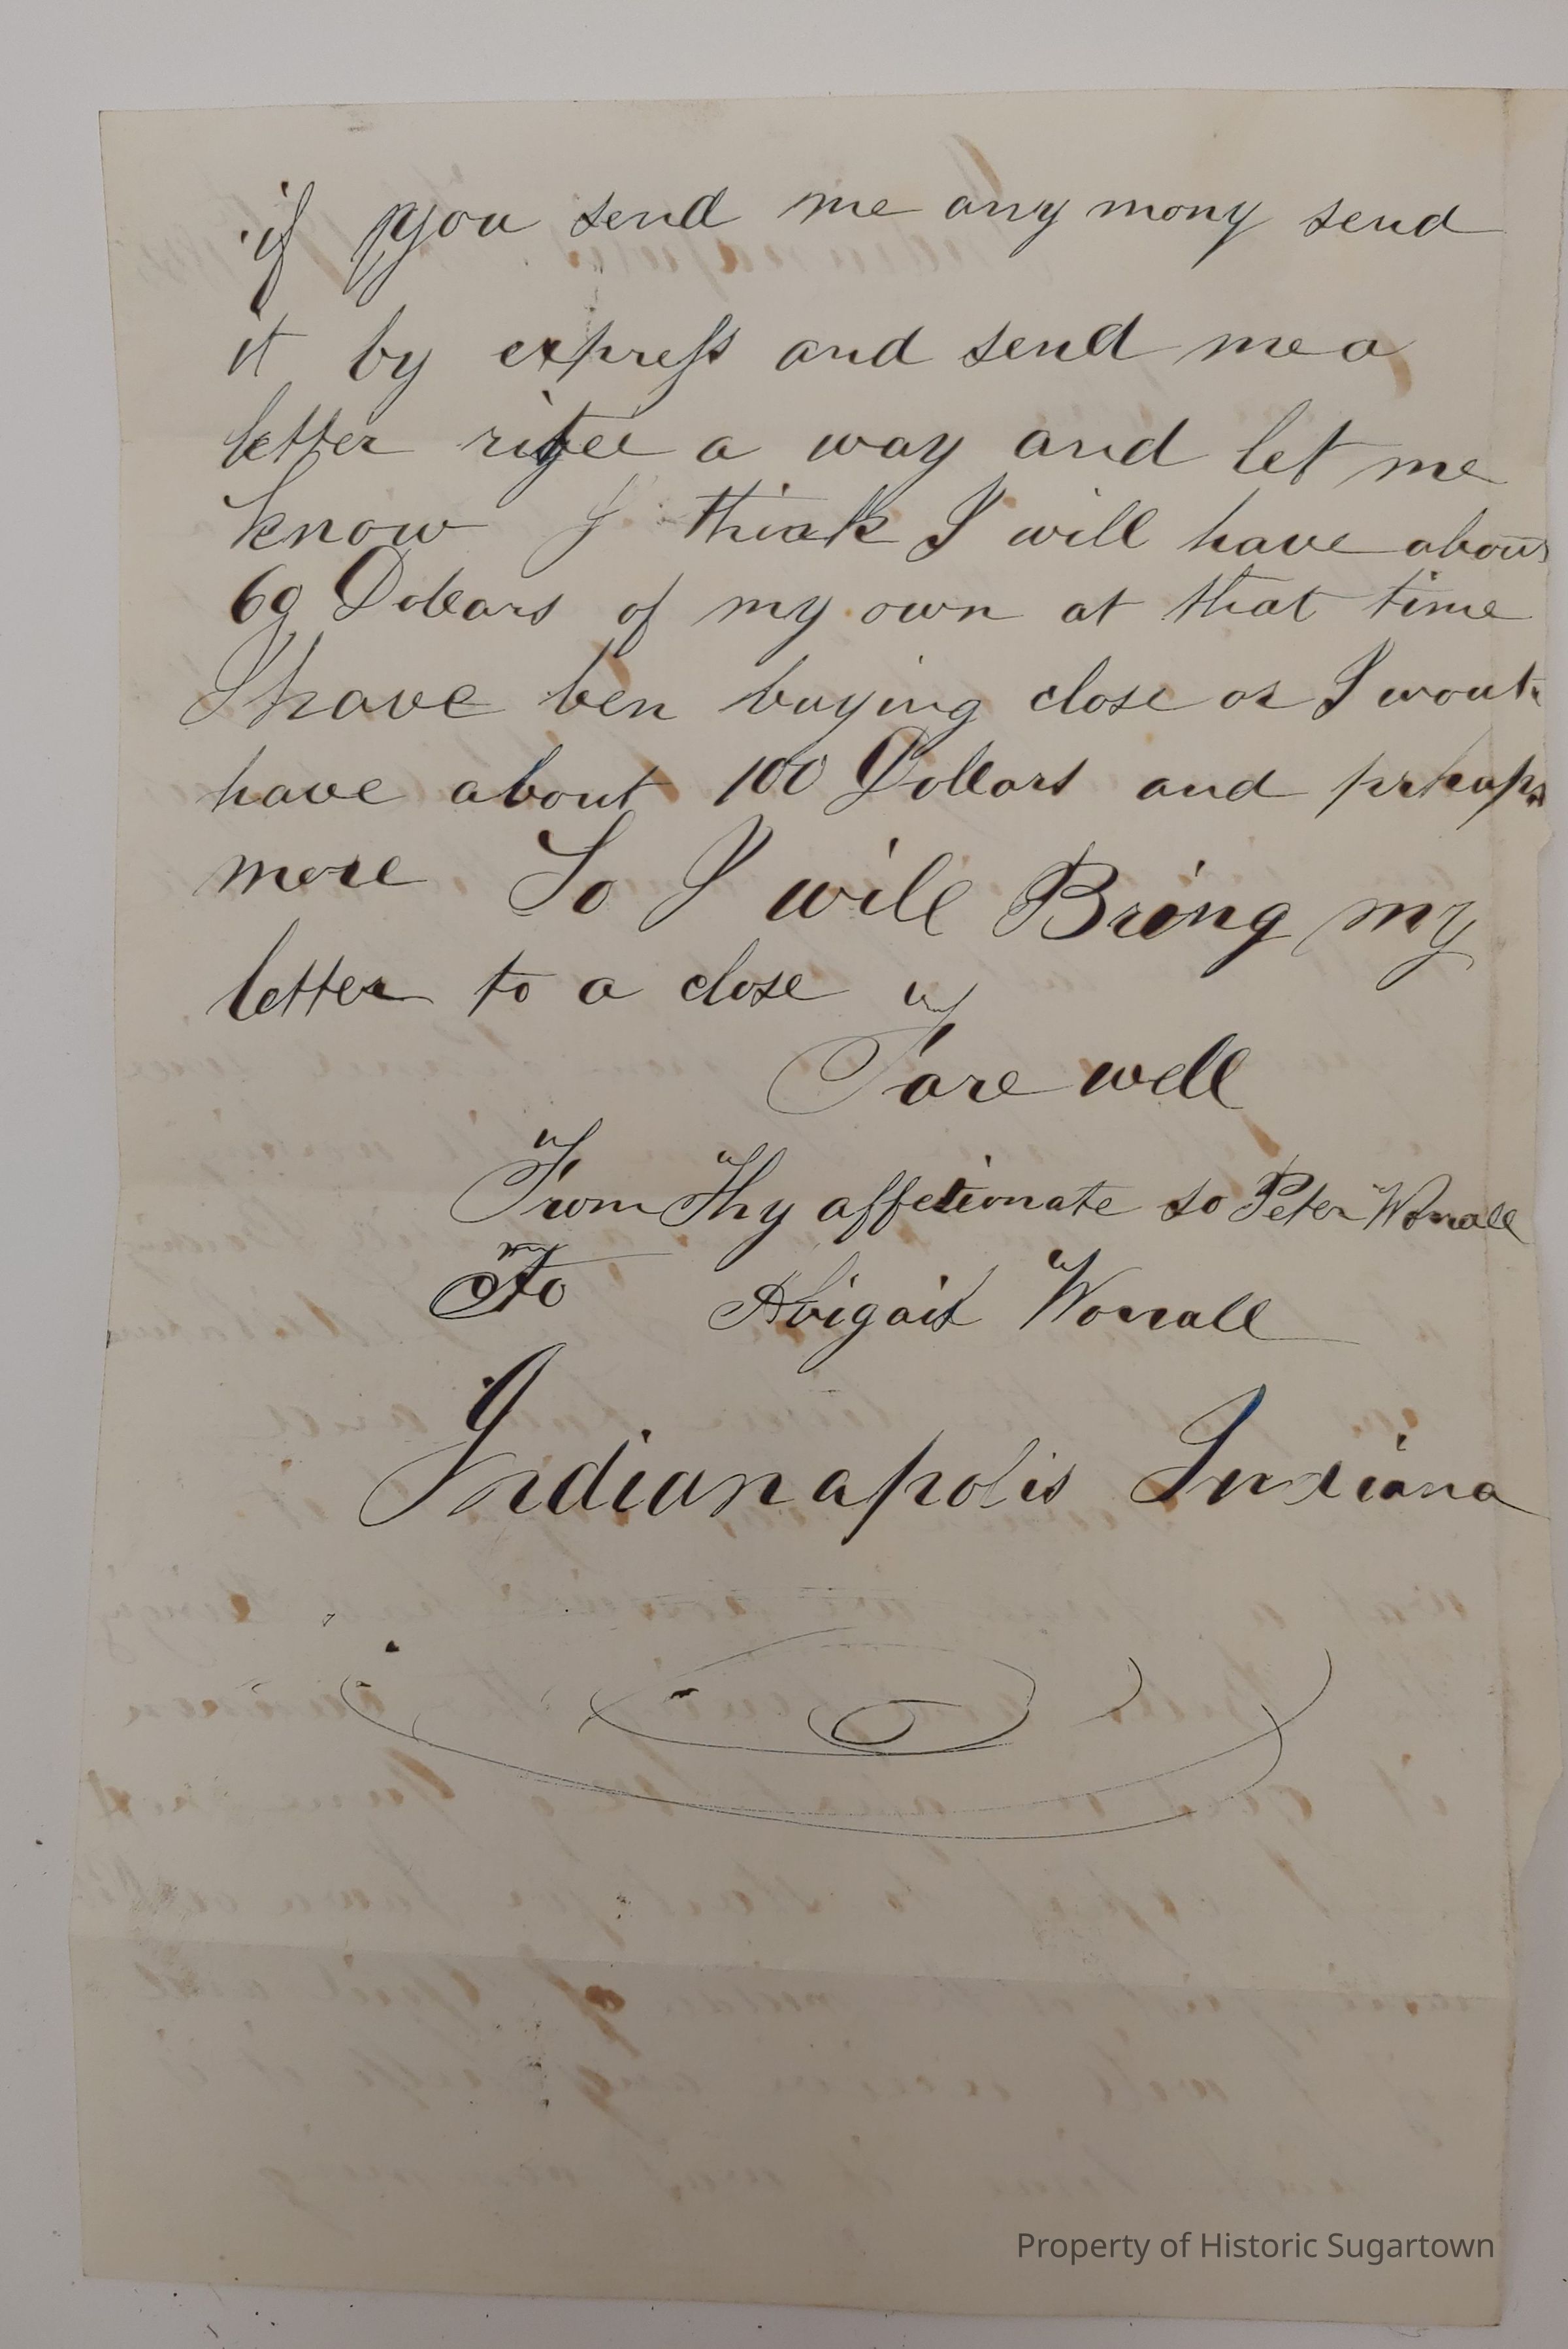 if you send me any mony send
it by express and send me a
letter rite a way and let me
know I think I will have about
69 Dollars of my own at that time
I have ben buying close or I would
have about 100 Dollars and prhaps
more So I will Bring my
letter to a close
Fare well
From Thy affectionate so Peter Worrall
To Abigail Worrall
Indianapolis Indiana
Property of Historic Sugartown